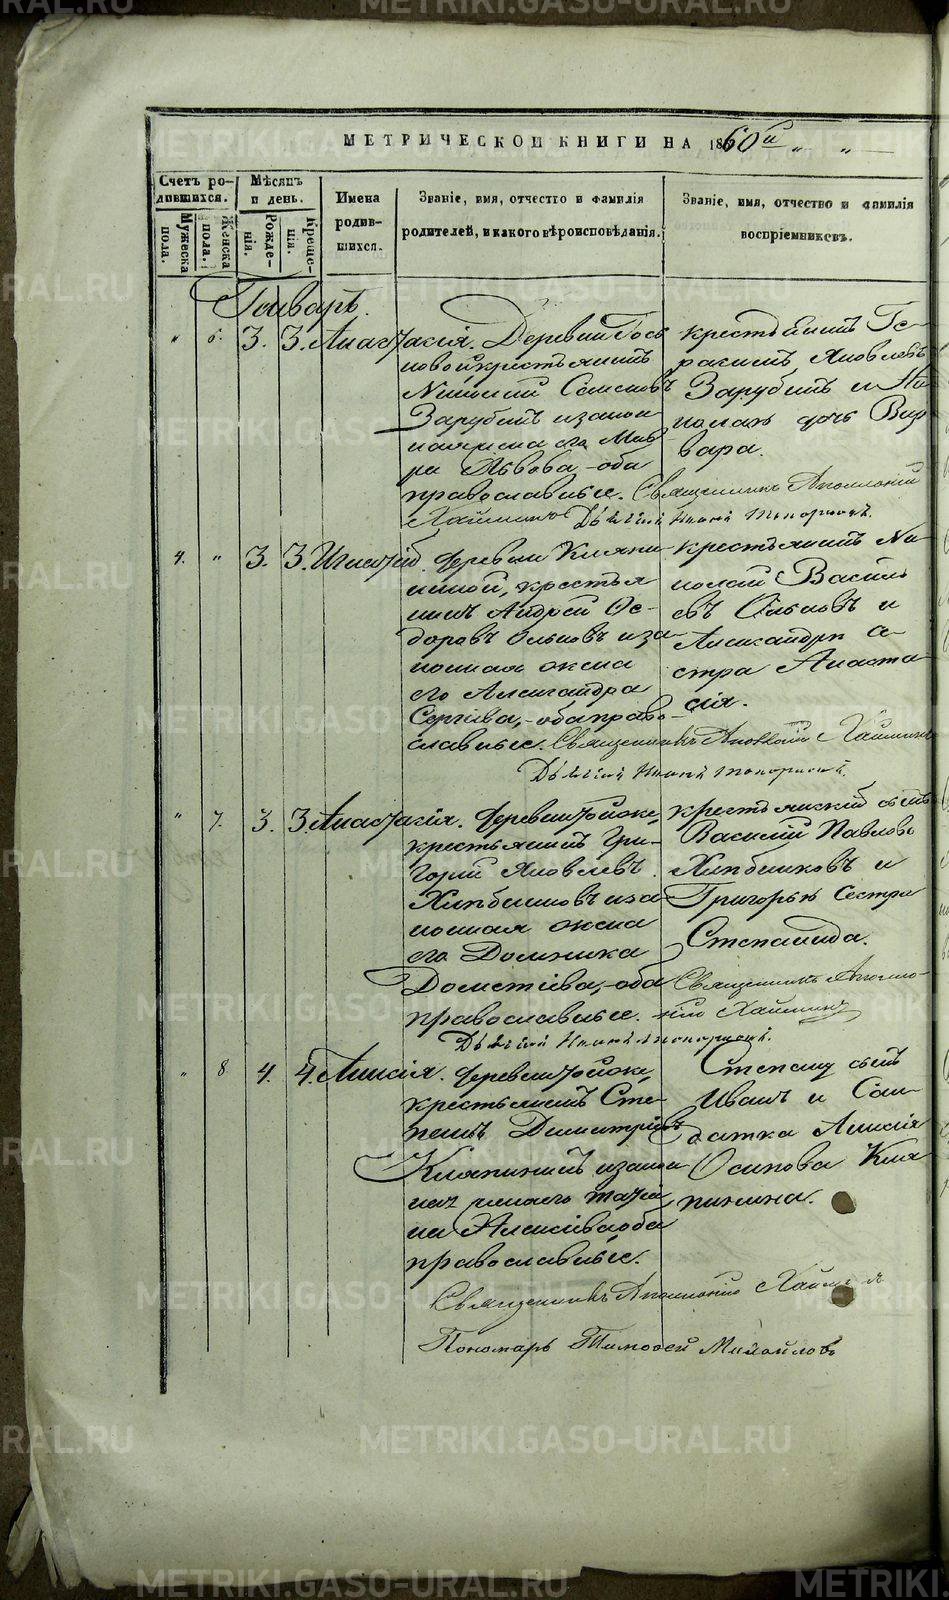 МЕТРИЧЕСКОЙ КНИГИ НА 1860й
Счетъ родившихся.
Мужеска пола.
Женска пола.
Мѣсяцъ и день.
Рожденія.
Крещенія.
Имена родившихся.
Званіе, имя, отчество и фамилія
родителей, и какого вѣроисповѣданія.
Званіе, имя, отчество и фамилія
воспріемниковъ.
Январь.
" 6. 3. 3. Анастасія.
новой крестьянинъ
Николай Семеновъ
Зарубинъ и закон
ная жена его Мав
ра Львова, оба
православные.
крестьянинъ Ге-
расимъ Яковлевъ
Зарубинъ и Ни
колая дочь Вар
вара.
Священникъ Аполлоній
Хайминъ
4. " 3. 3. Игнатій.
деревни Кляпи
ниной, крестья
нинъ Андрей Ѳе-
доровъ Ольковъ и за
конная жена
его Александра
Сергіева, оба право
славные.
крестьянинъ Ни
колай Василь
евъ Ольковъ и
Александры се
стра Анаста
сія.
Священникъ Аполлоній Хайминъ
" 7. 3. 3. Анастасія.
крестьянинъ Гри-
горій Яковлевъ
Хлѣбниковъ и за
конная жена
его Домника
Дометіева, оба
православные.
крестьянскій сынъ
Василій Павловъ
Хлѣбниковъ и
Григорья сестра
Степанида.
Священникъ Аполло-
ній Хайминъ
" 8 4. 4. Анисія.
крестьянинъ Сте-
панъ Димитріевъ
Кляпининъ и закон
ная жена его Татья
на Алексіева оба
православные.
Степану сынъ
Иванъ и Сол
датка Анисія
Осипова Кля
пинина.
Священникъ Аполлоній Хайминъ
Пономарь Тимоѳей Михайловъ